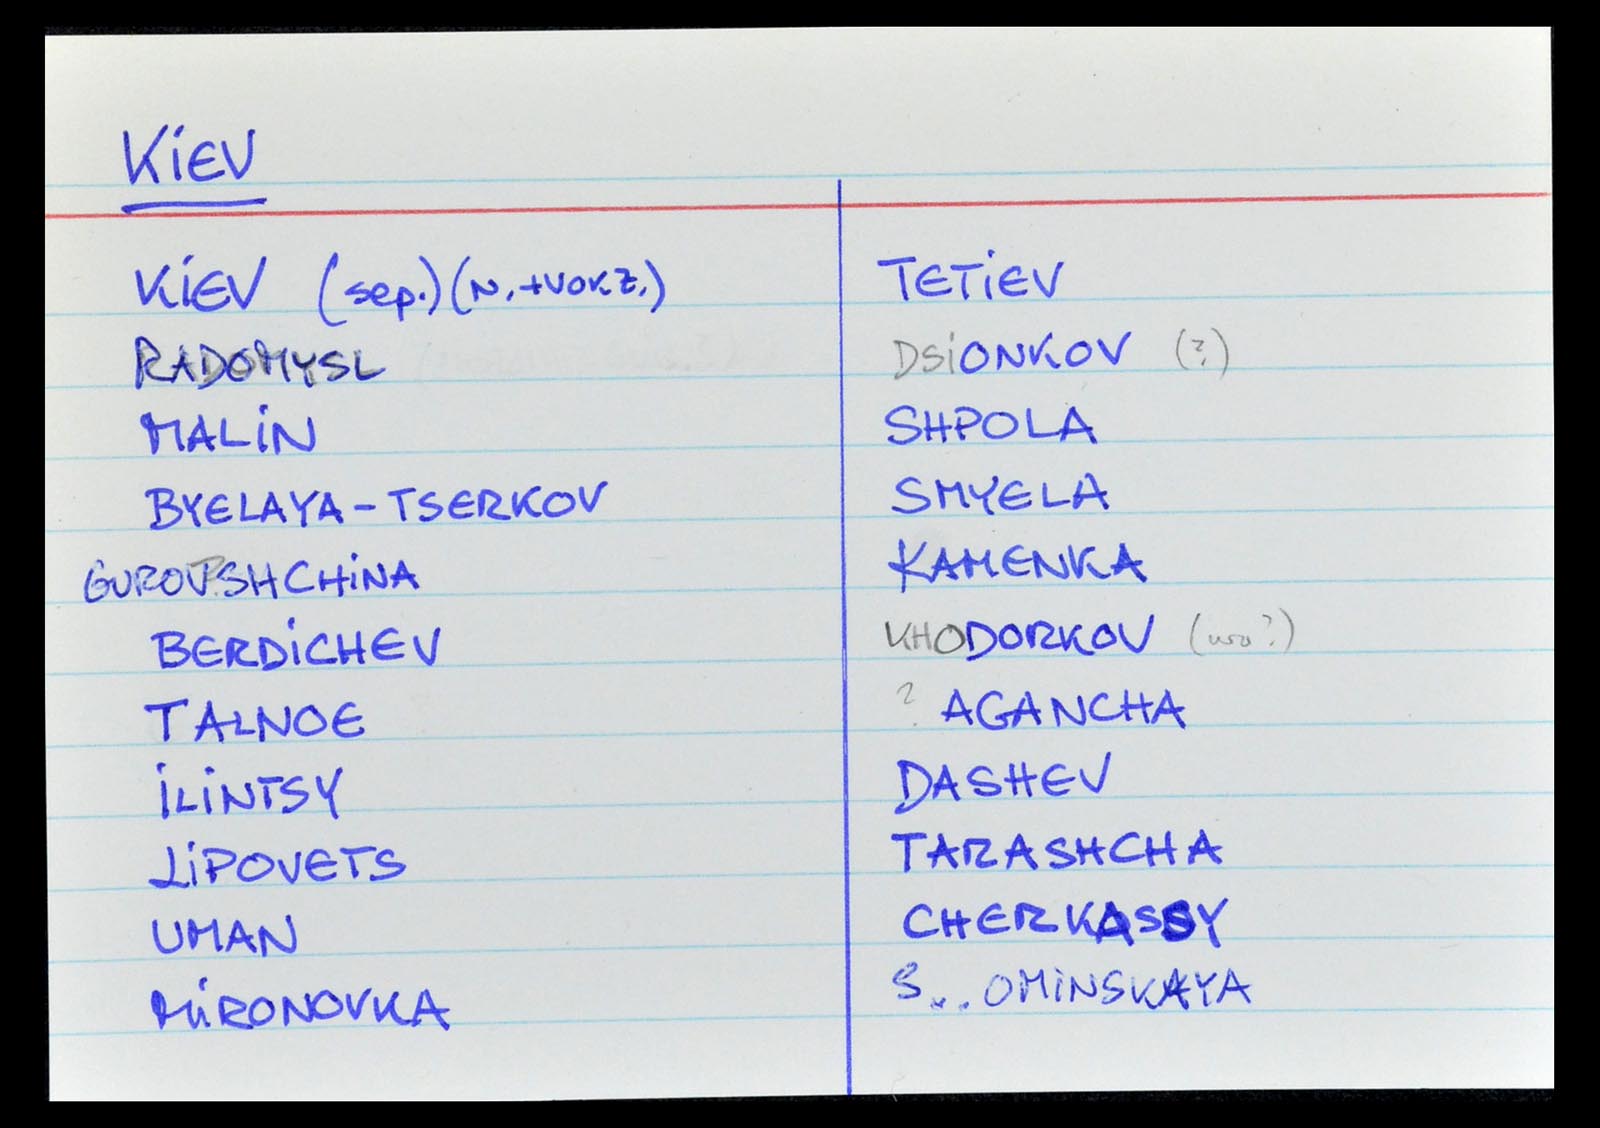 KiEV
KiEV (sep.) (N.+VOKZ.)
RADOMYSL
MALiN
BYELAYA-TSERKOV
GUROVSHCHiNA
BERDiCHEV
TALNOE
iLiNTSY
LiPOVETS
UMAN
MiRONOVKA
TETiEV
DSiONKOV (?)
SHPOLA
SMYELA
KAMENKA
KHODORKOV
? AGANCHA
DASHEV
TARASHCHA
CHERKASSY
S...OMiNSKAYA